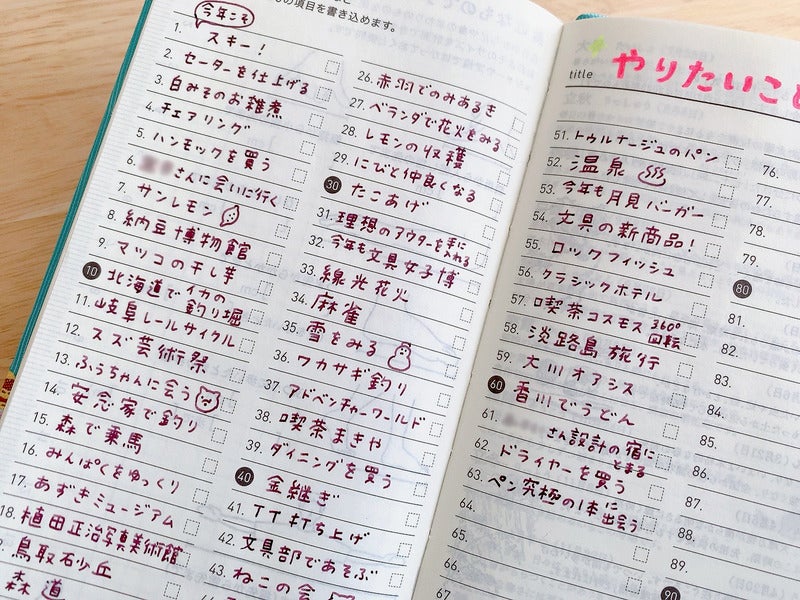 の項目を書き込めます。
今年こそ
1. スキー！
2. セーターを仕上げる
3. 白みそのお雑煮
4. チェアリング
5. ハンモックを買う
6. さんに会いに行く
7. サンレモン
8. 納豆博物館
9. マツコの干し芋
10 北海道でイカの釣り堀
11. 岐阜レールサイクル
12. スズ芸術祭
13. ふうちゃんに会う
14. 安念家で釣り
15. 森で乗馬
16. みんぱくをゆっくり
17. あずきミュージアム
18. 植田正治写真美術館
9. 鳥取石少丘
森道
26. 赤羽でのみあるき
27. ベランダで花火をみる
28. レモンの収穫
29. にびと仲良くなる
30 たこあげ
31. 理想のアウターを手に入れる
32. 今年も文具女子博
33. 線光花火
34. 麻雀
35. 雪をみる
36. ワカサギ釣り
37. アドベンチャーワールド
38. 喫茶まきや
39. ダイニングを買う
40 金継ぎ
41. TTキTち上げ
42. 文具部であそぶ
43. ねこの会
title やりたいこと
51. トゥルナージュのパン
52. 温泉
53. 今年も月見バーガー
54. 文具の新商品！
55. ロックフィッシュ
56. クラシックホテル
57. 喫茶コスモス360°回転
58. 淡路島旅行
59. 大川オアシス
60 香川でうどん
61. さん設計の宿にとまる
62. ドライヤーを買う
63. ペン究極の1本に出会う
64.
65.
66.
67
76.
77.
78.
79.
80
81.
82.
83.
84.
85.
86.
87.
88.
89.
90